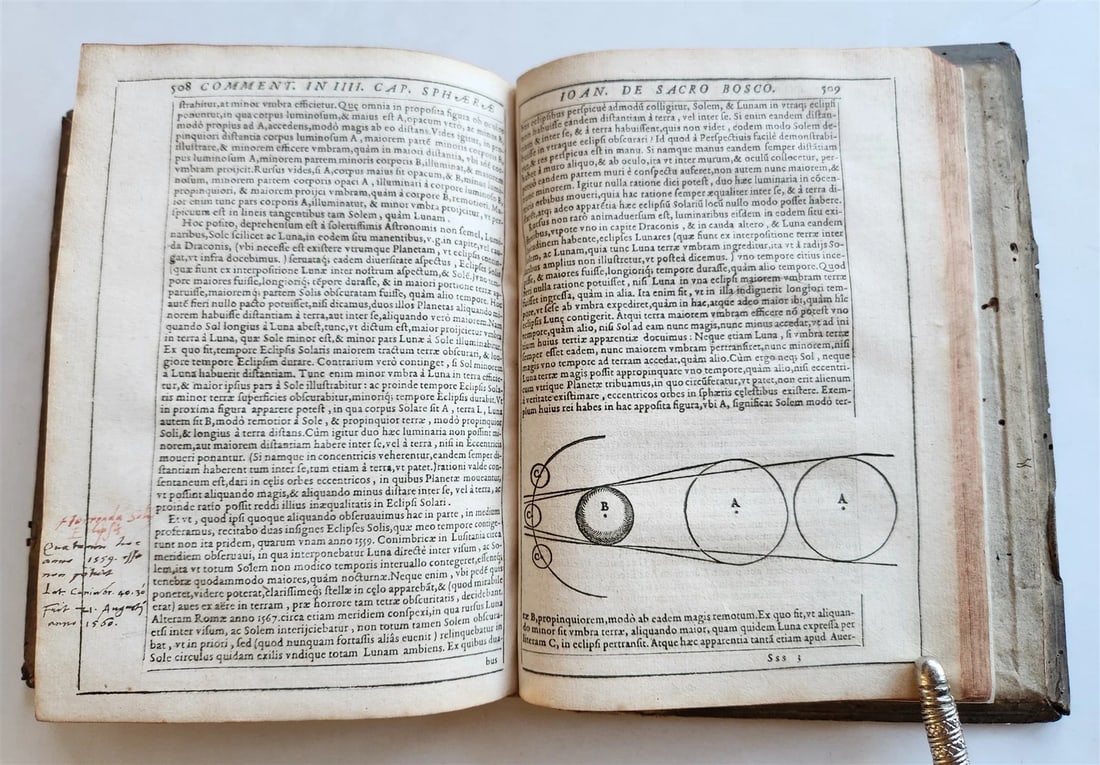 508 COMMENT. IN IIII. CAP. SPHÆRÆ
ſtrahitur, at minor vmbra efficietur. Quę omnia in propoſita figura
ponuntur, in qua corpus luminoſum, & maius eſt A, opacum verò, ac minus
modò propius ad A, accedens, modò magis ab eo diſtans. Vides igitur, in
pinquiori diſtantia corpus luminoſum A, maiorem partē minoris corporis B,
illuſtrare, & minorem efficere vmbram, quàm in maiori diſtantia, vbi idē
pus luminoſum A, minorem partem minoris corporis B, illuminat, &
vmbram proijcit. Rurſus vides, ſi A, corpus maius ſit opacum, & B, minus
noſum, minorem partem corporis opaci A, illuminari à corpore luminoſo B,
propinquiori, & maiorem proijci vmbram, quàm à corpore B, remotiori.
ior enim tunc pars corporis A, illuminatur, & minor vmbra proijcitur, vt
ſpicuum eſt in lineis tangentibus tam Solem, quàm Lunam.
Hoc poſito, deprehenſum eſt à ſolertiſsimis Aſtronomis non ſemel,
naribus, Sole ſcilicet ac Luna, in eodem ſitu manentibus, v.g. in capite, vel
da Draconis, (vbi neceſſe eſt exiſtere vtrumque Planetam, vt eclipſis
gat, vt infra docebimus.) ſeruataq́; eadem diuerſitate aſpectus, Eclipſes
(quæ fiunt ex interpoſitione Lunæ inter noſtrum aſpectum, & Solē)
pore maiores fuiſſe, longioriq́; tēpore duraſſe, & in maiori portione terræ
paruiſſe, maioremq́; partem Solis obſcuratam fuiſſe, quàm alio tempore. Hoc
autē fieri nullo pacto potuiſſet, niſi dicamus, duos illos Planetas aliquando
norem habuiſſe diſtantiam à terra, aut inter ſe, aliquando verò maiorem. Nam
quando Sol longius à Luna abeſt, tunc, vt dictum eſt, maior proijcietur vmbra
in terrã à Luna, quæ Sole minor eſt, & minor pars Lunæ à Sole illuminabitur.
Ex quo fit, tempore Eclipſis Solaris maiorem tractum terræ obſcurari, &
giore tempore Eclipſim durare. Contrarium verò continget, ſi Sol minorem
à Luna habuerit diſtantiam. Tunc enim minor vmbra à Luna in terra
tur, & maior ipſius pars à Sole illuſtrabitur: ac proinde tempore Eclipſis
ris minor terræ ſuperficies obſcurabitur, minoriq́; tempore Eclipſis durabit. Vt
in proxima figura apparere poteſt, in qua corpus Solare ſit A, terra L, Luna
autem ſit B, modò remotior à Sole, & propinquior terræ, modò propinquior
Soli, & longius à terra diſtans. Cùm igitur duo hæc luminaria non poſsint
norem, aut maiorem diſtantiam habere inter ſe, vel à terra, niſi in Eccentricis
moueri ponantur. (Si namque in concentricis veherentur, eandem ſemper
ſtantiam haberent tum inter ſe, tum etiam à terra, vt patet.) rationi valde
ſentaneum eſt, dari in cęlis orbes eccentricos, in quibus Planetæ mouantur,
vt poſsint aliquando magis, & aliquando minus diſtare inter ſe, vel à terra, ac
proinde ratio poſsit reddi illius inæqualitatis in Eclipſi Solari.
Et vt, quod ipſi quoque aliquando obſeruauimus hac in parte, in medium
proferamus, recitabo duas inſignes Eclipſes Solis, quæ meo tempore
runt non ita pridem, quarum vnam anno 1559. Conimbricæ in Luſitania
meridiem obſeruaui, in qua interponebatur Luna directè inter viſum, ac
lem, ita vt totum Solem non modico temporis interuallo contegeret,
tenebræ quodammodo maiores, quàm nocturnæ. Neque enim, vbi pedē quis
poneret, videre poterat, clariſsimeq́; ſtellæ in cęlo apparebãt, & (quod mirabile
erat) aues ex aëre in terram, præ horrore tam tetræ obſcuritatis, decidebant.
Alteram Romæ anno 1567. circa etiam meridiem conſpexi, in qua rurſus Luna
etſi inter viſum, ac Solem interijciebatur, non totum tamen Solem
bat, vt in priori, ſed (quod nunquam fortaſsis aliâs euenit) relinquebatur in
Sole circulus quidam exilis vndique totam Lunam ambiens. Ex quibus
bus
Quatuor
anno 1559. eſſe
non potuit
40.30
Fuit 21. Auguſti
anno 1560.
IOAN. DE SACRO BOSCO. 509
eclipſibus perſpicuè admodũ colligitur, Solem, & Lunam in vtraq; eclipſi
habuiſſe eandem diſtantiam à terra, vel inter ſe. Si enim eandem
& inter ſe, & à terra habuiſſent, quis non videt, eodem modo Solem
buiſſe in vtraque eclipſi obſcurari? Id quod à Perſpectiuis facilè
res perſpicua eſt in manu. Si namque manus eandem ſemper diſtãtiam
à muro aliquo, & ab oculo, ita vt inter murum, & oculũ collocetur,
eandem partem muri è conſpectu auferet, non autem nunc maiorem, &
minorem. Igitur nulla ratione dici poteſt, duo hæc luminaria in
orbibus moueri, quia hac ratione ſemper æqualiter inter ſe, & à terra
atqi adeo apparētia hæc eclipſiū Solariū locū nullo modo poſſet habere.
Rurſus non rarò animaduerſum eſt, luminaribus eiſdem in eodem ſitu
vtpote vno in capite Draconis, & in cauda altero, & Luna eandem
habente, eclipſes Lunares (quæ fiunt ex interpoſitione terræ inter
ac Lunam, quia tunc Luna terræ vmbram ingreditur, ita vt à radijs
amplius non illuſtretur, vt poſtea dicemus.) vno tempore citius
& maiores fuiſſe, longioriq́; tempore duraſſe, quàm alio tempore. Quod
nulla ratione potuiſſet, niſi Luna in vna eclipſi maiorem vmbram terræ
ingreſſa, quàm in alia. Ita enim fit, vt in illa indigeat longiori
vt ſeſe ab vmbra expediret, quàm in hac, atque adeo maior ibi, quàm hîc
eclipſis Lunę contigerit. Atqui terra maiorem vmbram efficere nõ poteſt vno
tempore, quàm alio, niſi Sol ad eam nunc magis, nunc minus accedat, vt ad
huius tertiæ apparentiæ docuimus: Neque etiam Luna, ſi vmbra terræ
ſemper eſſet eadem, nunc maiorem vmbram pertranſiret, nunc minorem, niſi
magis vno tempore ad terram accedat, quàm alio. Cùm ergo neq; Sol, neque
Luna terræ magis poſsit appropinquare vno tempore, quàm alio, niſi
cum vtrique Planetæ tribuamus, in quo circũferatur, vt patet, non erit alienum
à veritate exiſtimare, eccentricos orbes in ſphæris cęleſtibus exiſtere.
plum huius rei habes in hac appoſita figura, vbi A, ſignificat Solem modò
C
C
C
B
A
A
B, propinquiorem, modò ab eadem magis remotum. Ex quo fit, vt
do minor ſit vmbra terræ, aliquando maior, quam quidem Luna expreſſa per
literam C, in eclipſi pertranſit. Atque hæc apparentia tanti etiam apud
Sss 3